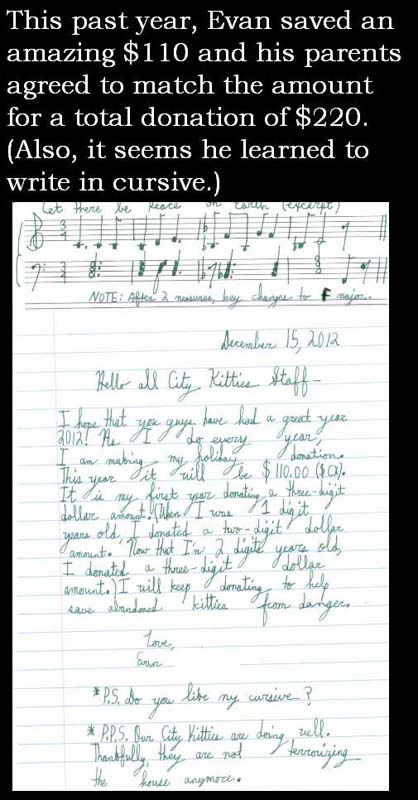 This past year, Evan saved an
amazing $110 and his parents
agreed to match the amount
for a total donation of $220.
(Also, it seems he learned to
write in cursive.)
Let there be Peace on Earth (excerpt)
NOTE: After 2 measures, key changes to F major.
December 15, 2012
Hello all City Kitties Staff-
I hope that you guys have had a great year
2012! As I do every year,
I am making my holiday donation.
This year it will be $110.00 ($CX).
It is my first year donating a three-digit
dollar amount. (When I was 1 digit
years old, I donated a two-digit dollar
amount. Now that I'm 2 digits years old,
I donated a three-digit dollar
amount.) I will keep donating to help
save abandoned kitties from danger.
Love,
Evan
*P.S. Do you like my cursive?
*P.P.S. Our City Kitties are doing well.
Thankfully, they are not terrorizing
the house anymore.